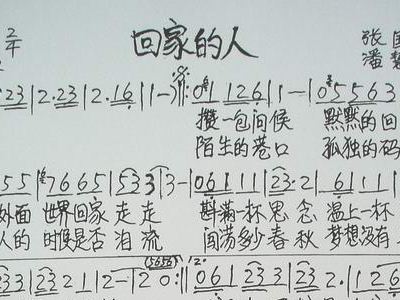 2
4
回家的人
张国
潘
23 | 2·23 | 2·16 | 1 1 - :||: 01 126 | 1 - | 05563
攒一包问候 默默的回
陌生的巷口 孤独的码
55 | 7665 | 533 | 3 - | 06111 | 232 | 6111
外面 世界回家走走 斟满一杯思念 温上一杯
人的 时候是否泪流 闯荡多少春秋 梦想没有
(5656)
1233 | 23212 | 2 - | 20 :|| 061 | 233 | 23212 | 126